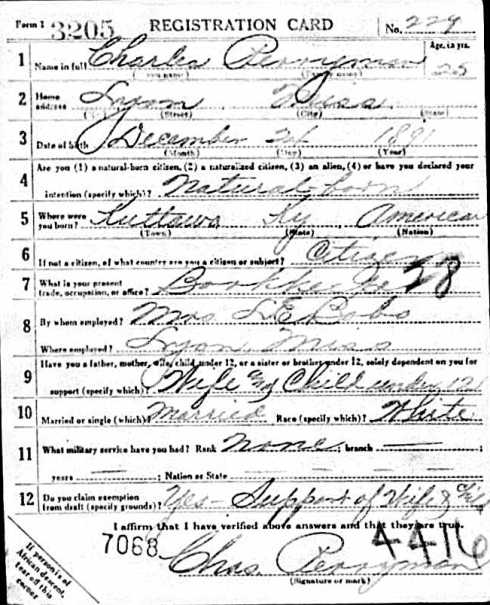 Form 1 3205 REGISTRATION CARD No. 229
1 Name in full Charles Perryman Age, in yrs. 25
(Given name) (Family name)
2 Home address Lyon Miss
(Street) (City) (State)
3 Date of birth December 24 1891
(Month) (Day) (Year)
4 Are you (1) a natural-born citizen, (2) a naturalized citizen, (3) an alien, (4) or have you declared your
intention (specify which)? Natural-born
5 Where were you born? Kuttawa Ky American
(Town) (State) (Nation)
6 If not a citizen, of what country are you a citizen or subject? Citizen
7 What is your present trade, occupation, or office? Bookkeeper 28
8 By whom employed? Mrs L E Bobo
Where employed? Lyon Miss
9 Have you a father, mother, wife, child under 12, or a sister or brother under 12, solely dependent on you for
support (specify which)? Wife and Child under 12
10 Married or single (which)? Married Race (specify which)? White
11 What military service have you had? Rank None; branch —
years —; Nation or State —
12 Do you claim exemption from draft (specify grounds)? Yes - Support of Wife & Child
I affirm that I have verified above answers and that they are true.
7068 4416
Chas. Perryman
(Signature or mark)
If person is of
African descent,
tear off this
corner.